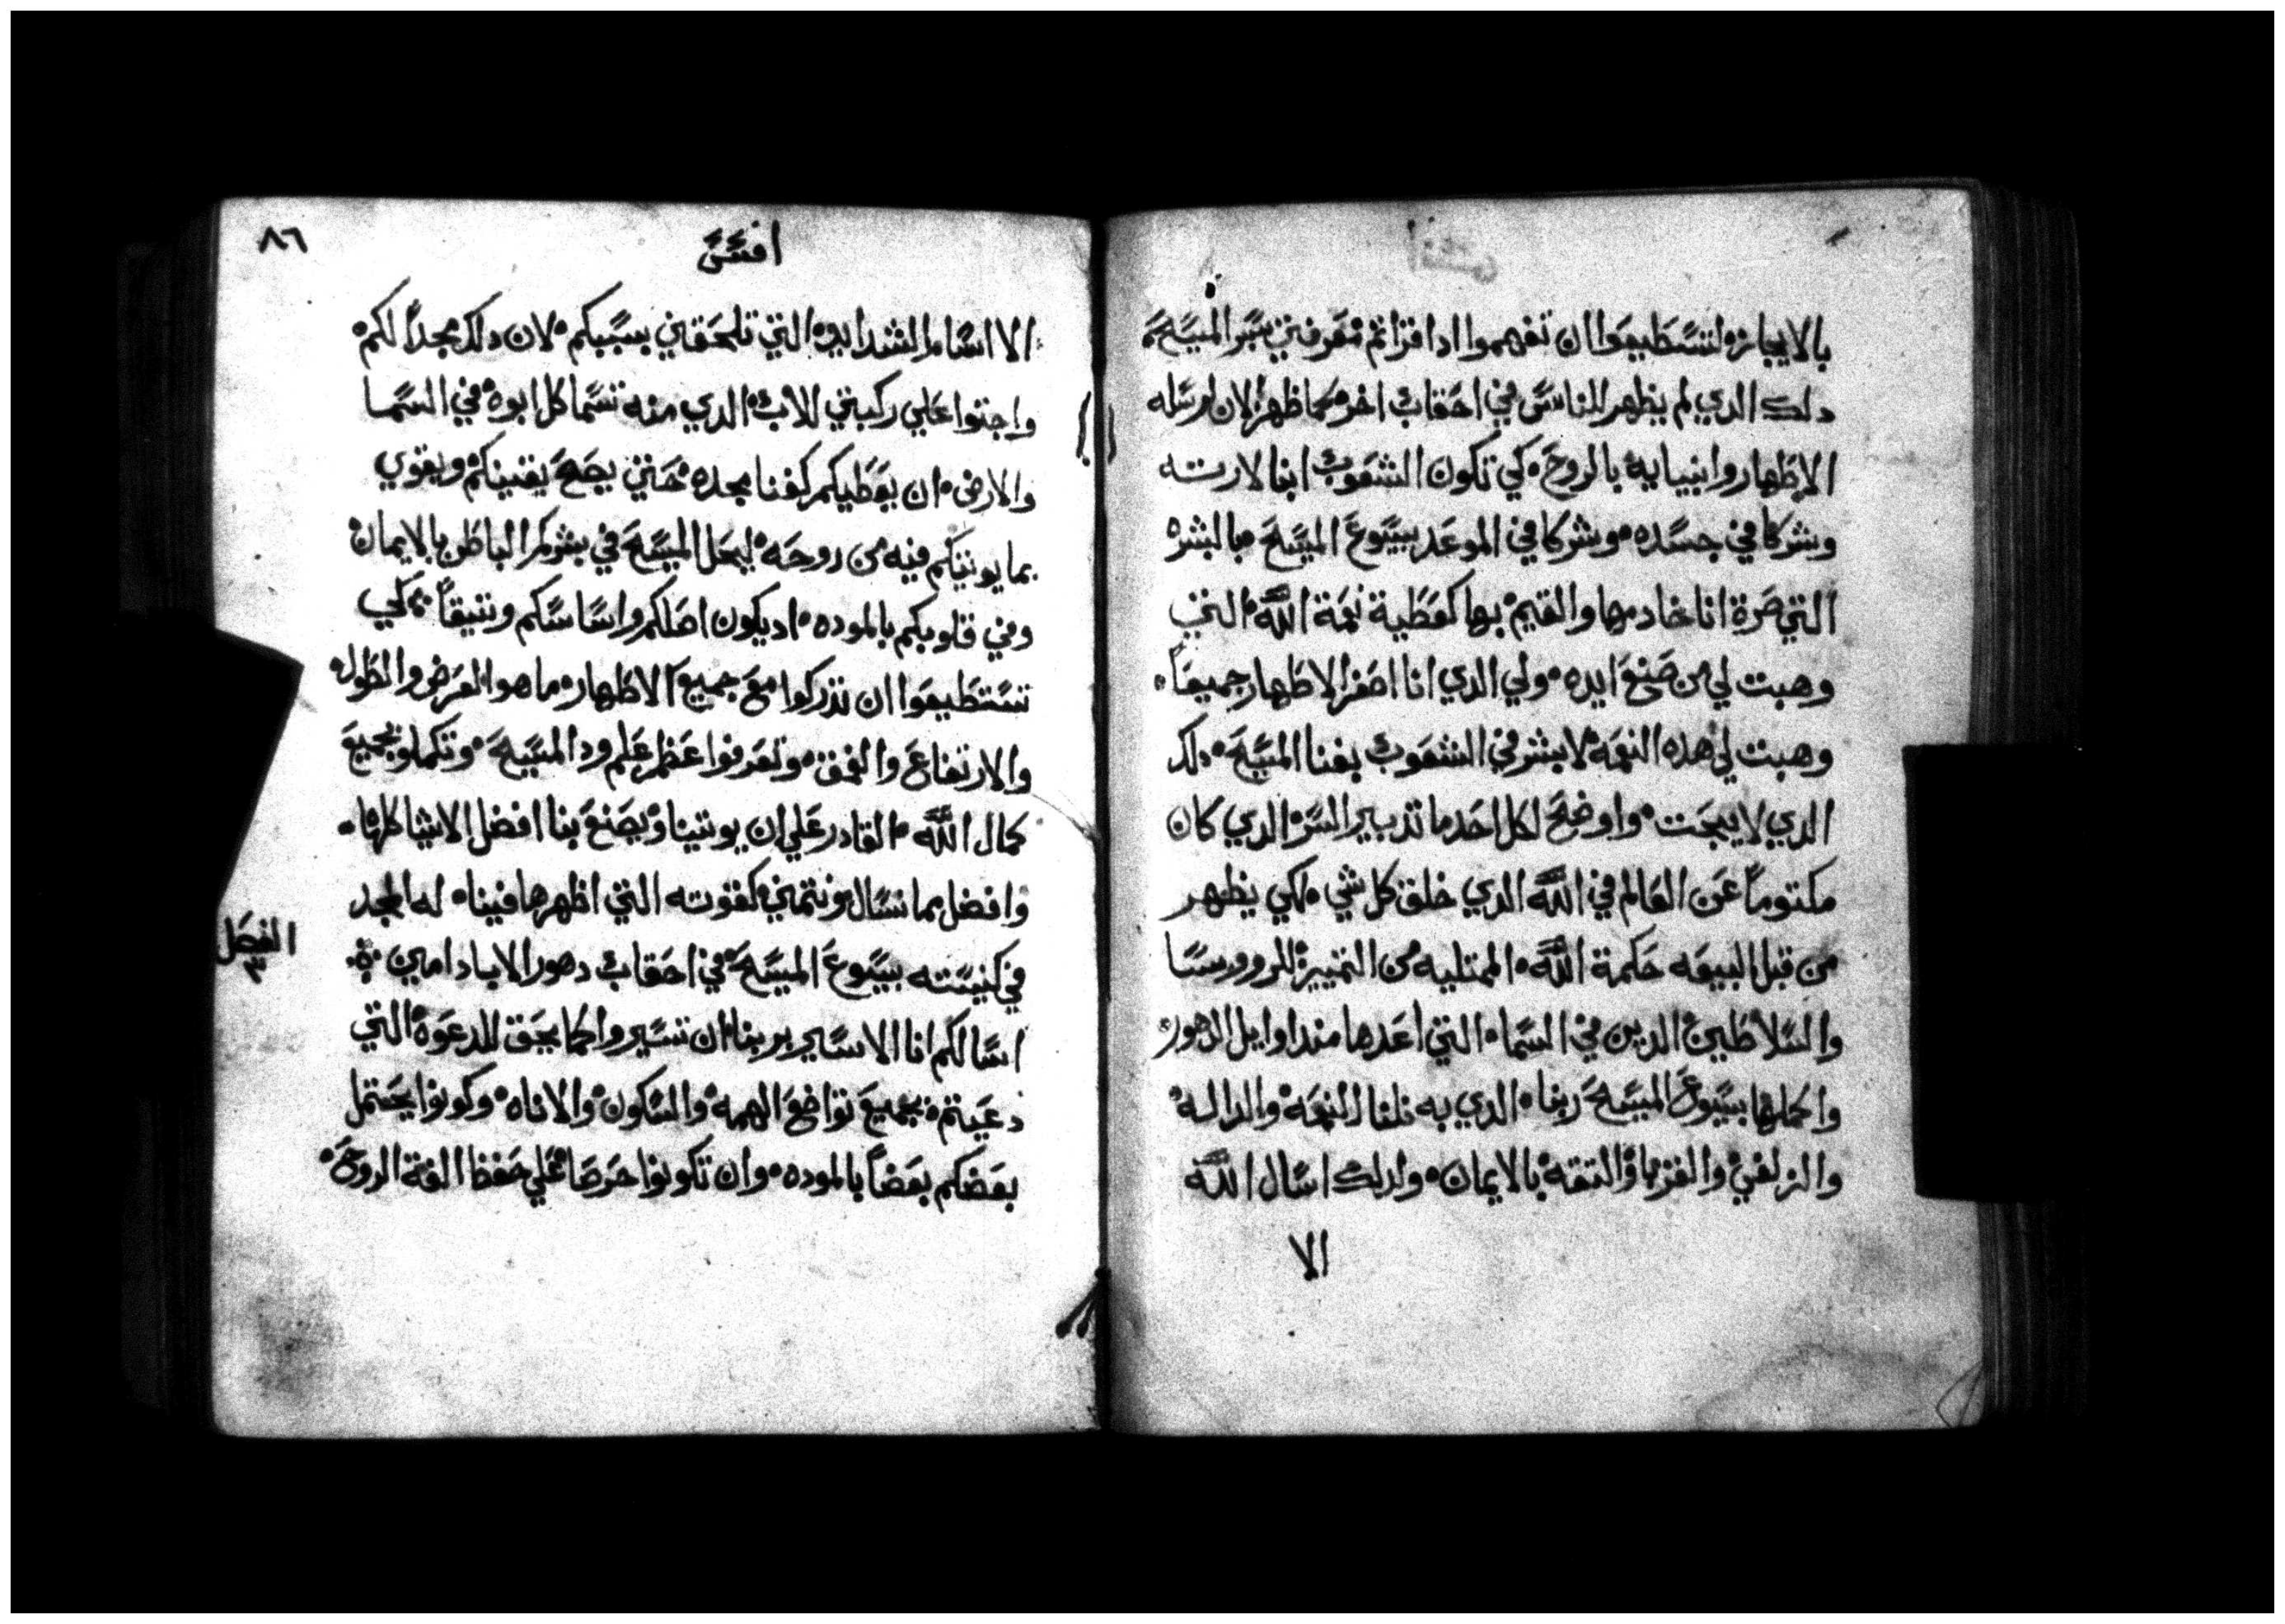 بالايجاز٥ لتستطيعوا ان تفهموا ادا قراتم معرفتي بسر المسيح
دلك الدي لم يظهر للناس في احقاب اخر٥ كما ظهر الان لرسله
الاطهار وانبيايه بالروح٥ كي تكون الشعوب ابنا لارته
وشركا في جسده٥ وشركا في الموعد بيسوع المسيح٥ بالبشره
التي صرة انا خادمها والقيم بها كعطية نعمة الله٥ التي
وهبت لي من صنع ايده٥ ولي الدي انا اصغر الاطهار جميعا٥
وهبت لي هده النعمه لابشر في الشعوب بغنا المسيح٥ دلك
الدي لا يبحت٥ واوضح لكل احد ما تدبير السر٥ الدي كان
مكتوما عن العالم في الله الدي خلق كل شي٥ لكي يظهر
من قبل البيعه حكمة الله٥ الممتليه من التمييز٥ للروورسسا
والسلاطين الدين في السما٥ التي اعدها مند اوايل الدهور٥
واكملها بيسوع المسيح ربنا٥ الدي به نلنا النعمه والداله
والزلفي والقربا والتقه بالايمان٥ ولدلك اسال الله
الا
٨٦
افسس
الا اسام الشدايد٥ التي تلحقني بسببكم٥ لان دلك مجدا لكم٥
واجتوا علي ركبتي للاب٥ الدي منه تسما كل ابوه في السما
والارض٥ ان يعطيكم كغنا مجده٥ حتي يصح يقينكم ويقوي
بما يوتيكم فيه من روحه٥ ليحل المسيح في بشركم الباطن بالايمان
وفي قلوبكم بالموده٥ اد يكون اصلكم واساسكم وتيقا٥ كي
تستطيعوا ان تدركوا مع جميع الاطهار٥ ما هو العرض والطول٥
والارتفاع والعمق٥ وتعرفوا عظم علم ود المسيح٥ وتكملو بجميع
كمال الله٥ القادر علي ان يوتينا ويصنع بنا افضل الاشيا كلها٥
وافضل مما نسال ونتمني كقوته التي اظهرها فينا٥ له المجد
في كنيسته بيسوع المسيح٥ في احقاب دهور الاباد امين
الفصل ٣
اسالكم انا الاسير بربنا٥ ان تسيروا كما يحق للدعوة التي
دعيتم٥ بجميع تواضع الهمه٥ والسكون والاناه٥ وكونوا يحتمل
بعضكم بعضا بالموده٥ وان تكونوا حرصا علي حفظ الفة الروح٥